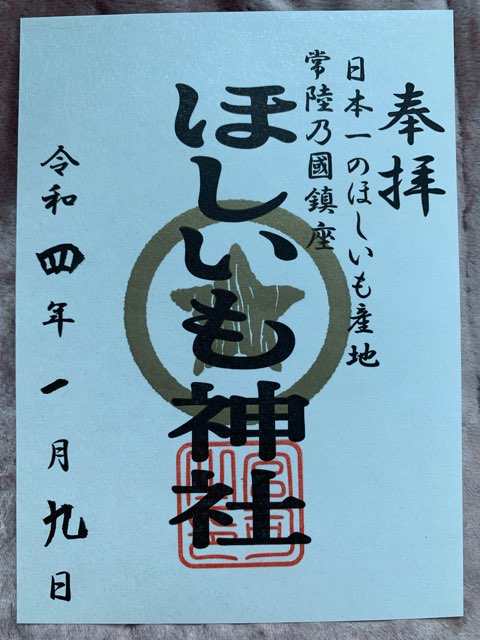 奉拝
日本一のほしいも産地
常陸乃國鎮座
ほしいも神社
令和四年一月九日